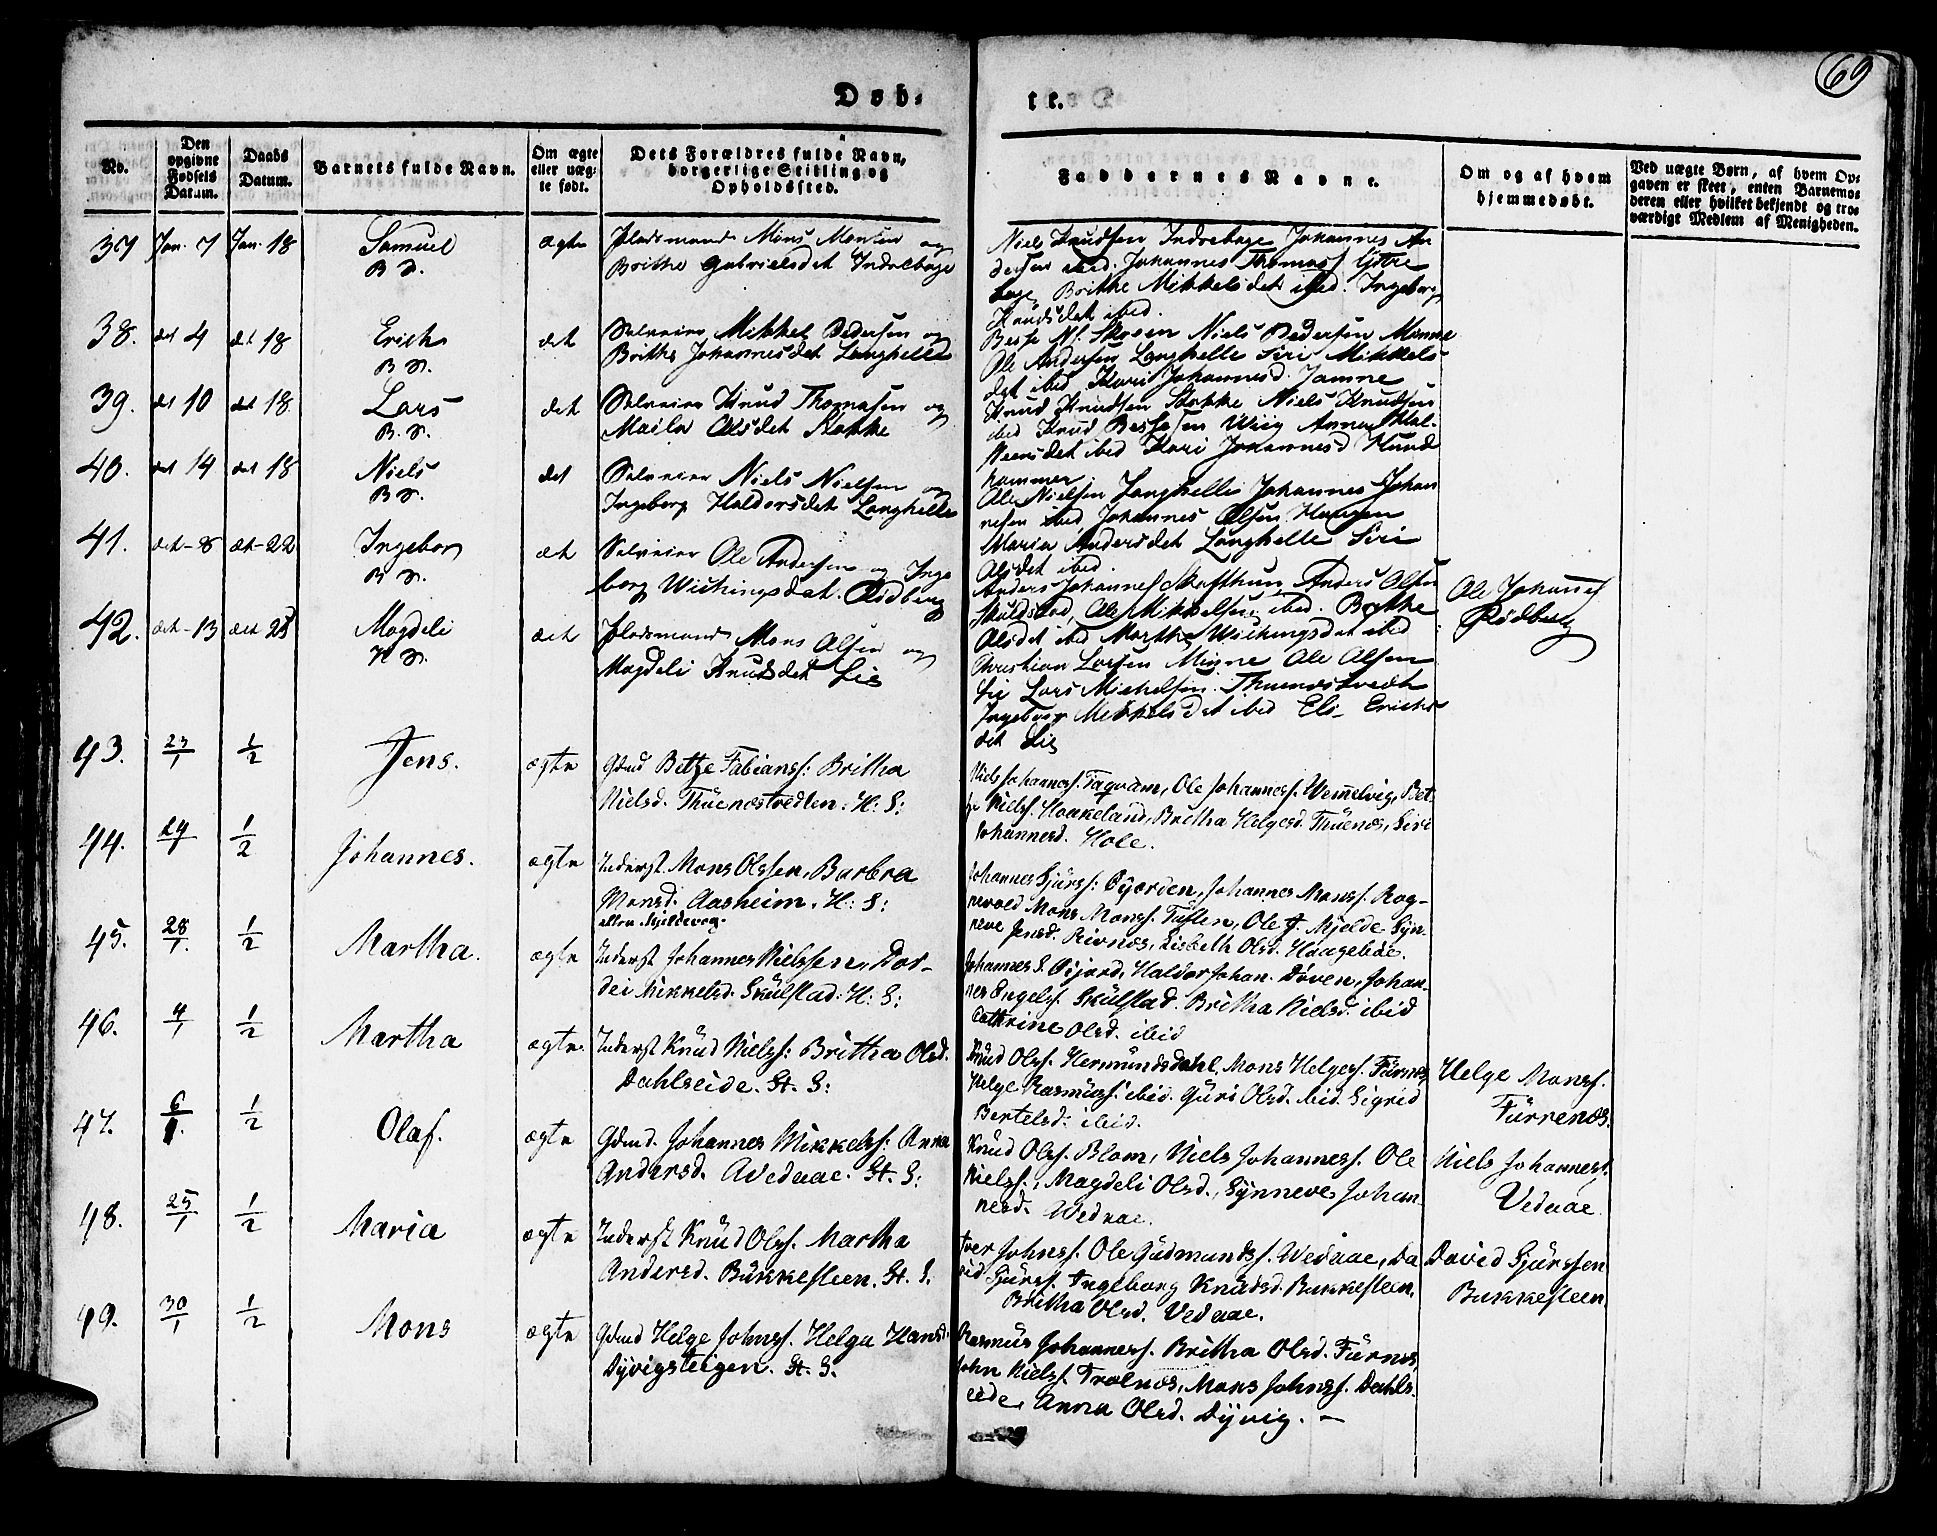 69
Døbte.
No.
Den opgivne Fødsels Datum.
Daabs Datum.
Barnets fulde Navn.
Om ægte eller uægte født.
Dets Forældres fulde Navn, borgerlige Stilling og Opholdssted.
Faddernes Navne.
Om og af hvem hjemmedøbt.
Ved uægte Børn, af hvem Opgaven er skeet, enten Barnemoderen eller hvilket bekjendt og troværdigt Medlem af Menigheden.
37 Jan. 7 Jan. 18 Samuel ægte Pladsmand Mons Monsen og
B S. Brithe Gabrielsdet Indrebøge
Niels Knudsen Indrebøge Johannes An
dersen ibid. Johannes Thomess. Ystre
bøge Brithe Mikkelsdet ibid. Ingeborg
Knudsdet ibid.
38. det 4 det 18 Erich det Selveier Mikkel Pedersen og
B S. Brithe Johannesdet Langhelle
Niels Pedersen Minne
Ole Andersen Langhelle Siri Mikkels
det ibid Kari Johannesd. Jamne
39. det 10 det 18. Lars det Selveier Knud Thomasen og
B. S. Olsdet Stokke
Knud Knudsen Stokke Niels Knudsen
ibid Knud Wiig Anna Hal-
det ibid Kari Johannesd Hunde
hammer
40. det 14 det 18 Niels det Selveier Niels Nielsen og
B S. Ingeborg Haldorsdet Langhelle
Ole Nielsen Langhelle Johannes Johan
nesen ibid Johannes Olsen Haugen
Maria Andersdet Langhelle Siri
Olsdet ibid.
41. det - 8 det - 22 Ingeborg det Selveier Ole Andersen og Inge
B S. borg Wichingsdat. Rødberg
Anders Johannes Skafthun, Anders Olsen
Skulstad, Ole Mikkelsen ibid. Brithe
Olsdet ibid Marthe Wichingsdat ibid
Ole Johannes
Rødberg
42. det - 13 det 25 Magdeli det Pladsmand Mons Olsen og
H S. Magdeli Knutsdet Lie
Christian Larsen Minne Ole Olsen
Lie Lars Michelsen Thuenæstvedt
Ingeborg Mikkelsdet ibid Eli Erichs
det Lie
43. 23/1 1/2 Jens. ægte Gdmd Betze Fabianss: Britha
Nielsd. Thuenæstvedten. H: S:
Niels Johanness. Taqvam, Ole Johanness. Wemelvig, Bet-
ze Nielss. Haakeland, Britha Helgesd. Thuenæs, Siri
Johannesd. Hole.
44. 24/1 1/2 Johannes. ægte Inderst. Mons Olssen, Barbra
Monsd. Aasheim. H: S:
Johannes Sjurss: Øyjorden, Johannes Monss. Rog-
nevold Mons Monss. Tuften, Ole J. Mjelde Syn-
neve Jensd. Rivnæs, Lisbeth Olsd. Haagebøe.
45. 28/1. 1/2 Martha. ægte Inderst Johannes Nielssen, Dor-
dei Mikkelsd. Skulstad. H: S:
Johannes S. Øyjord, Haldor Johan. Døven, Johan-
nes Engelss. Skulstad. Britha Nielsd. ibid
Cathrine Olsd. ibid
46. 4/1 1/2 Martha ægte. Inderst Knud Nielss: Britha Olsd.
Dahlseide. St. S:
Knud Olss. Hermundsdahl, Mons Helgess. Fürnes
Helge Rasmuss. ibid. Guri Olsd. ibid. Sigrid
Bertelsd. ibid.
Helge Monss.
Fürrenæs.
47. 6/1. 1/2 Olaf. ægte Gdmd. Johannes Mikkelss: Anna
Andersd. Avedaae. St. S:
Knud Olss. Blom, Niels Johanness. Ole
Nielss., Magdeli Olsd., Synneve Johan-
nesd. Wedaae.
Niels Johanness.
Vedaae
48. 25/1 1/2 Maria ægte Inderst Knud Olss. Martha
Andersd. Bukkesteen. St. S.
Iver Johnss. Ole Gudmundss. Wedaae, Da
vid Sjurss. Ingeborg Knudsd. Bukkesteen,
Britha Olsd. Vedaae.
David Sjurssen
Bukkesteen.
49. 30/1 1/2 Mons ægte Gdmd Helge Johnss. Helga Hansd.
Dyvigsteigen. St. S.
Rasmus Johanness. Britha Olsd. Fürnes
John Nielss. Trolnæs, Mons Johnss. Dahls-
eide, Anna Olsd. Dyvig. —